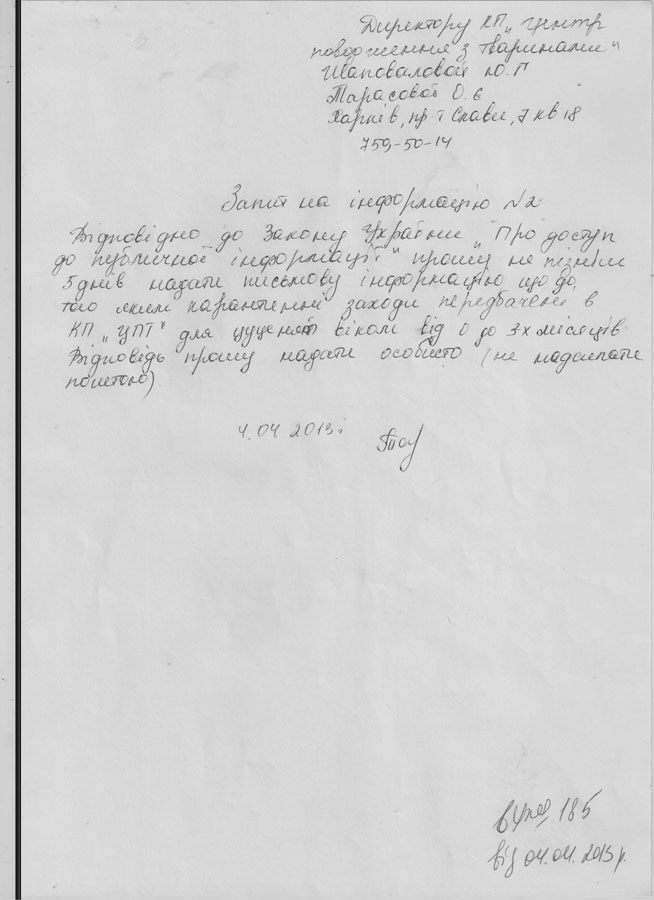 Директору КП „Центр
поводження з тваринами"
Шаповаловой Ю.Г
Тарасовой О.Є
Харків, пр-т Слави, 7 кв 18
759-50-14
Запит на інформацію N2
Відповідно до Закону України „Про доступ
до публичної інформації" прошу не пізніш
5 днів надати письмову інформацію що до
того які карантенні заходи передбачені в
КП „ЦПТ" для цуценят віком від 0 до 3х місяців
Відповідь прошу надати особисто (не надсилати
поштою).
4.04 2013г
185
від 04.04.2013 р.